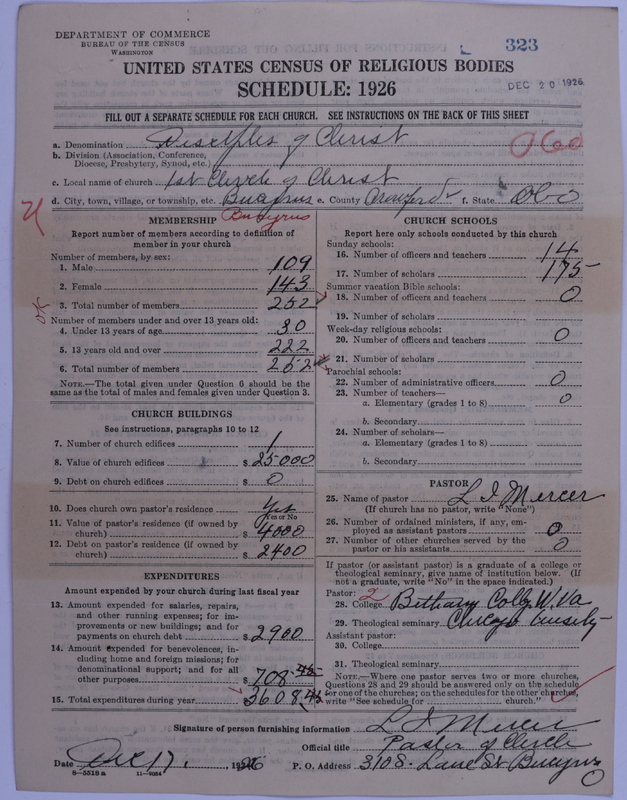 DEPARTMENT OF COMMERCE
BUREAU OF THE CENSUS
WASHINGTON
323
UNITED STATES CENSUS OF RELIGIOUS BODIES
SCHEDULE: 1926
DEC 20 1926
FILL OUT A SEPARATE SCHEDULE FOR EACH CHURCH. SEE INSTRUCTIONS ON THE BACK OF THIS SHEET
a. Denomination Disciples of Christ
060
b. Division (Association, Conference, Diocese, Presbytery, Synod, etc.)
c. Local name of church 1st Church of Christ
d. City, town, village, or township, etc. Bucyrus e. County Crawford f. State Ohio
Bucyrus
MEMBERSHIP
Report number of members according to definition of member in your church
Number of members, by sex:
1. Male 109
2. Female 143
3. Total number of members 252
OK
Number of members under and over 13 years old:
4. Under 13 years of age 30
5. 13 years old and over 222
6. Total number of members 252
NOTE.—The total given under Question 6 should be the same as the total of males and females given under Question 3.
CHURCH BUILDINGS
See instructions, paragraphs 10 to 12
7. Number of church edifices 1
8. Value of church edifices $ 25000
9. Debt on church edifices $ 0
10. Does church own pastor's residence Yes
Yes or No
11. Value of pastor's residence (if owned by church) $ 4000
12. Debt on pastor's residence (if owned by church) $ 2400
EXPENDITURES
Amount expended by your church during last fiscal year
13. Amount expended for salaries, repairs, and other running expenses; for improvements or new buildings; and for payments on church debt $ 2900
14. Amount expended for benevolences, including home and foreign missions; for denominational support; and for all other purposes $ 708 45
15. Total expenditures during year $ 3608 45
CHURCH SCHOOLS
Report here only schools conducted by this church
Sunday schools:
16. Number of officers and teachers 14
17. Number of scholars 175
Summer vacation Bible schools:
18. Number of officers and teachers 0
19. Number of scholars
Week-day religious schools:
20. Number of officers and teachers 0
21. Number of scholars
Parochial schools:
22. Number of administrative officers 0
23. Number of teachers—
a. Elementary (grades 1 to 8) 0
b. Secondary
24. Number of scholars—
a. Elementary (grades 1 to 8)
b. Secondary
PASTOR
25. Name of pastor L I Mercer
(If church has no pastor, write "None")
26. Number of ordained ministers, if any, employed as assistant pastors 0
27. Number of other churches served by the pastor or his assistants 0
If pastor (or assistant pastor) is a graduate of a college or theological seminary, give name of institution below. (If not a graduate, write "No" in the space indicated.)
Pastor: 2
28. College Bethany Colleg W. Va
29. Theological seminary Chicago
Assistant pastor:
30. College
31. Theological seminary
NOTE.—Where one pastor serves two or more churches, Questions 28 and 29 should be answered only on the schedule for one of the churches; on the schedules for the other churches, write "See schedule for church."
Signature of person furnishing information L I Mercer
Official title Pastor of Church
Date Dec 17, 1926 P. O. Address 310 S. Lane St Bucyrus O
8—5518a 11—9054